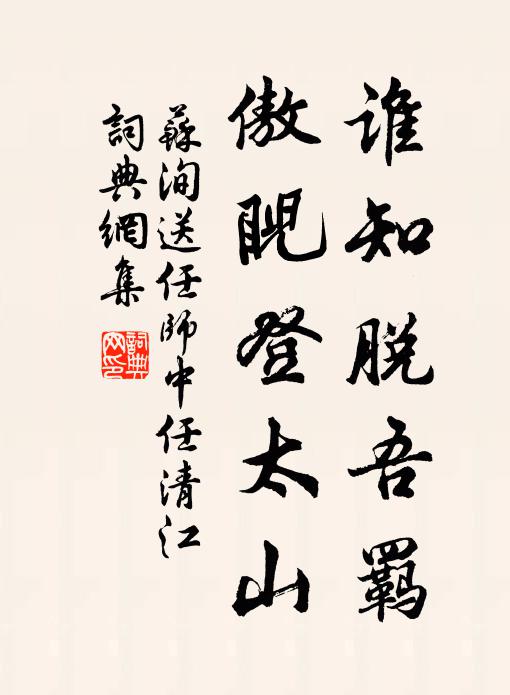 谁知脱吾羁
傲睨登太山
蘇洵送任師中任清江
詞典網集
詞典
网印